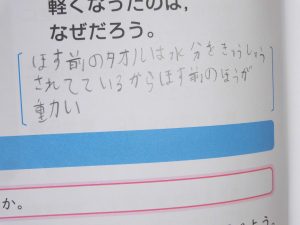 軽くなったのは,
なぜだろう。
ほす前のタオルは水分をきゅうしゅう
されてているからほす前のほうが
重かい
か。
よう。